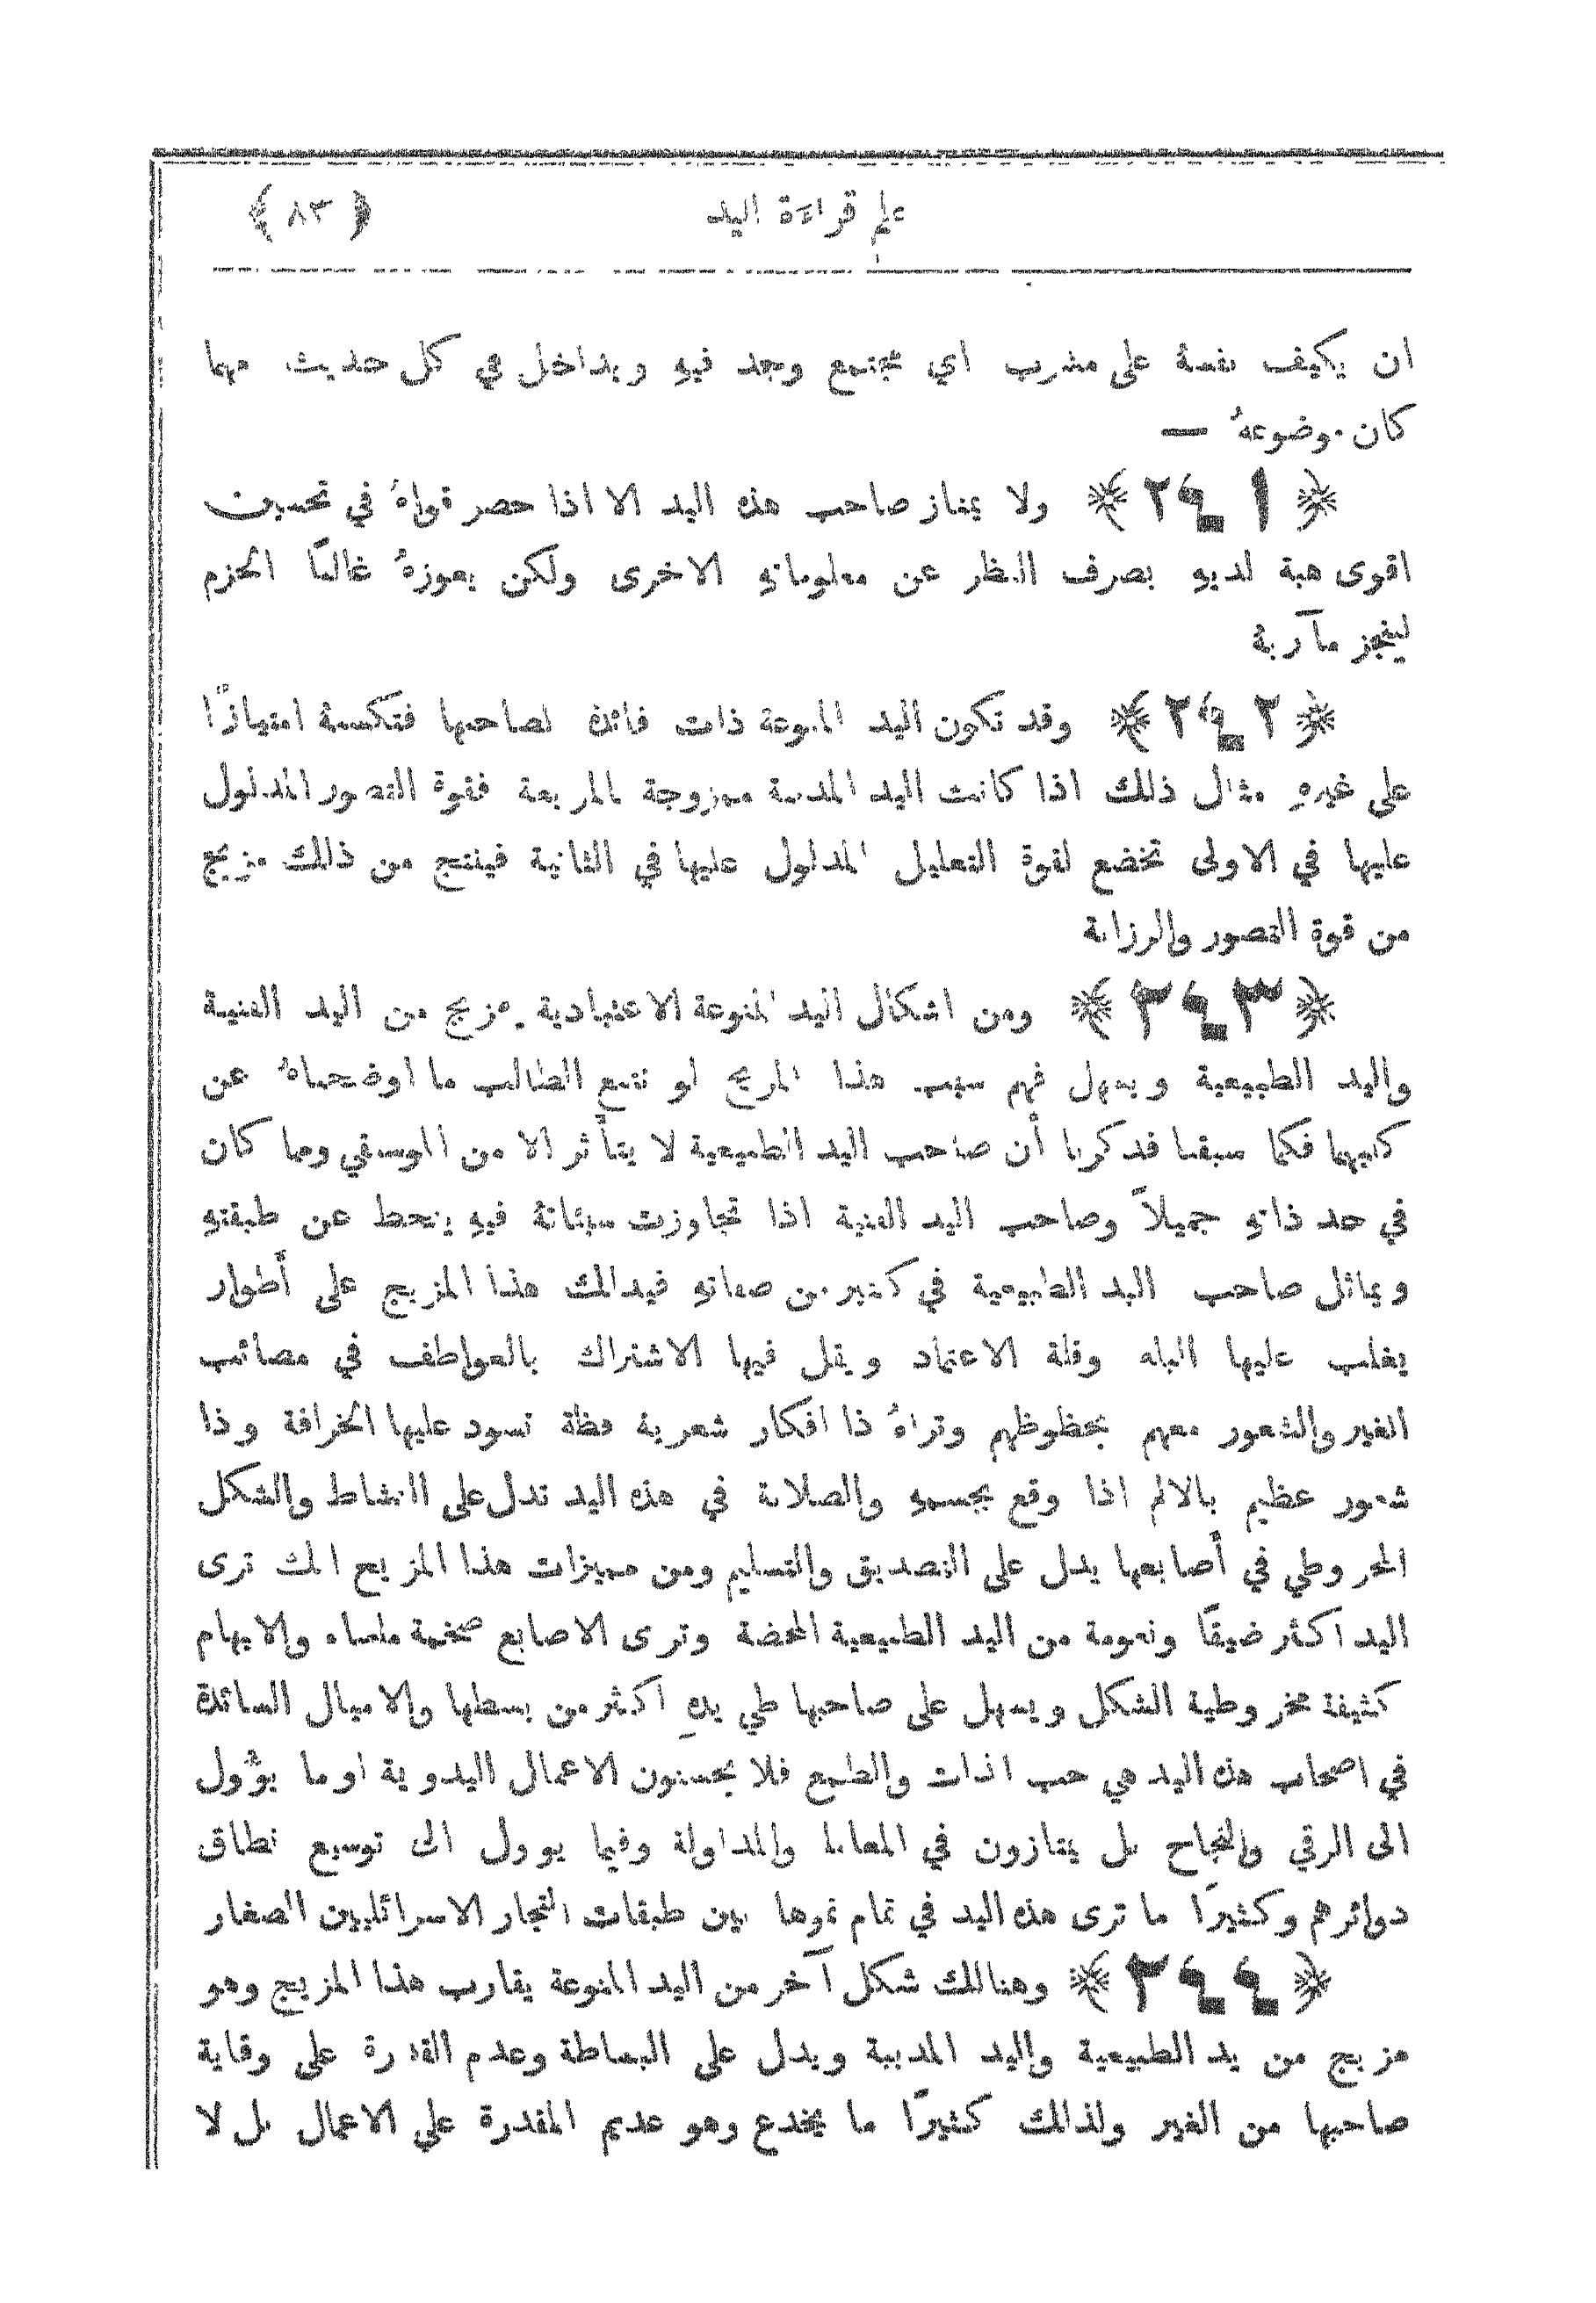 علم قراءة اليد ﴿ ٨٣ ﴾
ان يكيف نفسهُ على مشرب اي مجتمع وجد فيهِ ويداخل في كل حديث مهما
كان موضوعهُ —
﴿ ٢٤١ ﴾ ولا يمتاز صاحب هذه اليد الا اذا حصر قواهُ في تحسين
اقوى هبة لديهِ بصرف النظر عن معلوماتهِ الاخرى ولكن يعوزهُ غالبًا الحزم
لينجز مآربهُ
﴿ ٢٤٢ ﴾ وقد تكون اليد المنوعة ذات فائدة لصاحبها فتكسبهُ امتيازًا
على غيرهِ مثال ذلك اذا كانت اليد المدببة ممزوجة بالمربعة فقوة التصور المدلول
عليها في الاولى تخضع لقوة التعليل المدلول عليها في الثانية فينتج من ذلك مزيج
من قوة التصور والرزانة
﴿ ٢٤٣ ﴾ ومن اشكال اليد المنوعة الاعتيادية مزيج من اليد الفنية
واليد الطبيعية ويسهل فهم سبب هذا المزيج لو تتبع الطالب ما اوضحناهُ عن
كليهما فكما سبقنا فذكرنا أن صاحب اليد الطبيعية لا يتأثر الا من الموسيقي وما كان
في حد ذاتهِ جميلاً وصاحب اليد الفنية اذا تجاوزت سيئاتهُ فيهِ ينحط عن طبقتهِ
ويماثل صاحب اليد الطبيعية في كثير من صفاتهِ فيدلك هذا المزيج على أطوار
يغلب عليها البله وقلة الاعتماد ويقل فيها الاشتراك بالعواطف في مصائب
الغير والشعور معهم بحظوظهم وتراهُ ذا افكار شعرية فظة تسود عليها الخرافة وذا
شعور عظيم بالالم اذا وقع بجسمهِ والصلابة في هذه اليد تدل على النشاط والشكل
المخروطي في أصابعها يدل على التصديق والتسليم ومن مميزات هذا المزيج انك ترى
اليد اكثر ضيقًا ونعومة من اليد الطبيعية المحضة وترى الاصابع ضخمة ملساء والابهام
كثيفة مخروطية الشكل ويسهل على صاحبها طي يدهِ اكثر من بسطها والاميال السائدة
في اصحاب هذه اليد هي حب الذات والطمع فلا يحسنون الاعمال اليدوية او ما يؤول
الى الرقي والنجاح بل يمتازون في المعاملة والمداولة وفيما يوول الى توسيع نطاق
دوائرهم وكثيرًا ما ترى هذه اليد في تمام نموها بين طبقات التجار الاسرائليين الصغار
﴿ ٢٤٤ ﴾ وهنالك شكل آخر من اليد المنوعة يقارب هذا المزيج وهو
مزيج من يد الطبيعية واليد المدببة ويدل على البساطة وعدم القدرة على وقاية
صاحبها من الغير ولذلك كثيرًا ما يخدع وهو عديم المقدرة علي الاعمال بل لا